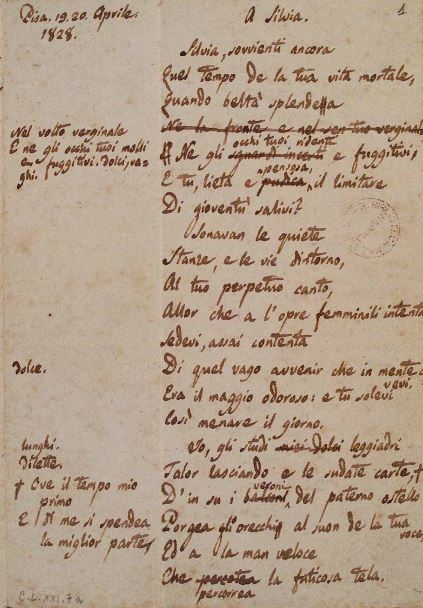 Pisa. 19. 20. Aprile.
1828.
A Silvia.
1
Silvia, sovvienti ancora
Quel tempo de la tua vita mortale,
Quando beltà splendea
Nel volto verginale
E ne gli occhi tuoi molli
e fuggitivi. dolci, va-
ghi.
Ne la fronte e nel sen tuo verginale
occhi tuoi ridenti
Ne gli sguardi incerti e fuggitivi,
pensosa,
E tu, lieta e pudica, il limitare
Di gioventù salivi?
Sonavan le quiete
Stanze, e le vie dintorno,
Al tuo perpetuo canto,
Allor che a l'opre femminili intenta
Sedevi, assai contenta
dolce.
Di quel vago avvenir che in mente
Era il maggio odoroso: e tu solevi
vevi.
Così menare il giorno.
lunghi.
Dilette.
Io, gli studi miei dolci leggiadri
Talor lasciando e le sudate carte, †
† Ove il tempo mio
primo
E di me si spendea
la miglior parte,
veroni
D' in su i balconi, del paterno ostello
Porgea gli orecchi al suon de la tua
voce,
Ed a la man veloce
Che percotea la faticosa tela.
percorrea
C.L.XXI.7a